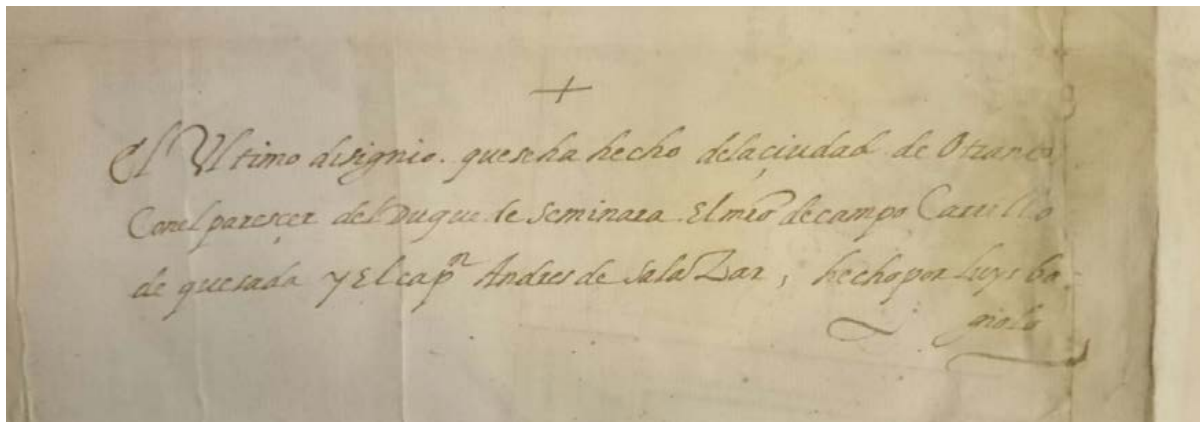 +
El Ultimo disignio. quese ha hecho dela ciudad de Otranto
Conel parescer del Duque de Seminara. El mro de campo Carrillo
de quesada y El capn Andres de SalaZar, hecho por Luys ba-
giolo